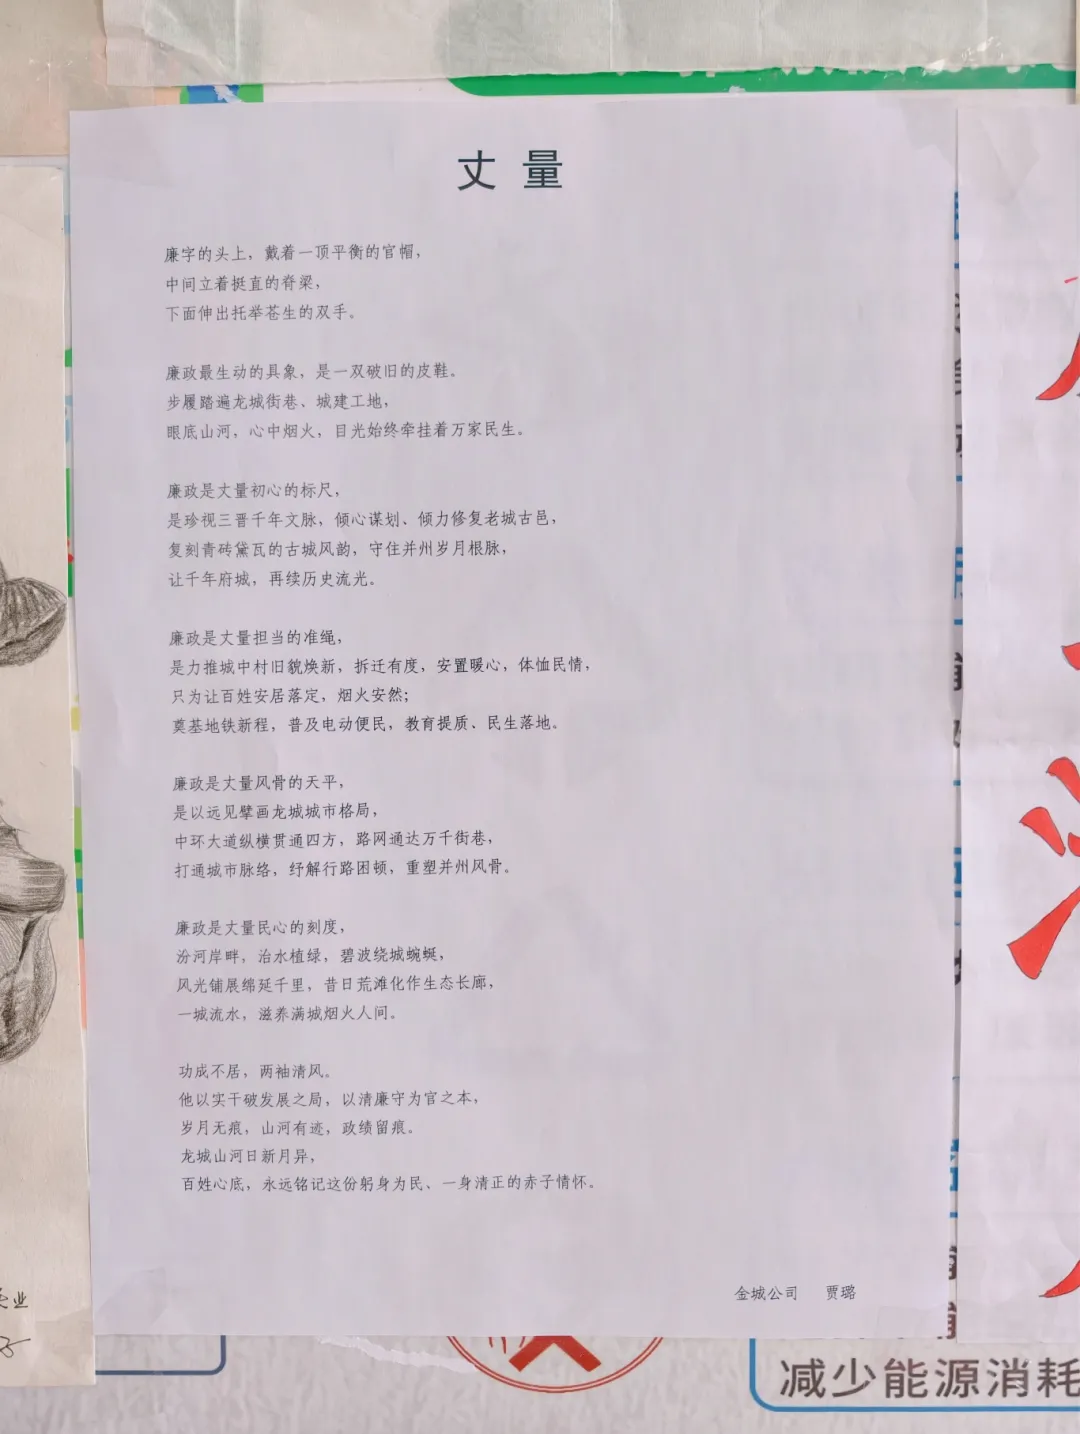 丈量
廉字的头上，戴着一顶平衡的官帽，
中间立着挺直的脊梁，
下面伸出托举苍生的双手。
廉政最生动的具象，是一双破旧的皮鞋。
步履踏遍龙城街巷、城建工地，
眼底山河，心中烟火，目光始终牵挂着万家民生。
廉政是丈量初心的标尺，
是珍视三晋千年文脉，倾心谋划、倾力修复老城古邑，
复刻青砖黛瓦的古城风韵，守住并州岁月根脉，
让千年府城，再续历史流光。
廉政是丈量担当的准绳，
是力推城中村旧貌焕新，拆迁有度，安置暖心，体恤民情，
只为让百姓安居落定，烟火安然；
奠基地铁新程，普及电动便民，教育提质、民生落地。
廉政是丈量风骨的天平，
是以远见擘画龙城城市格局，
中环大道纵横贯通四方，路网通达万千街巷，
打通城市脉络，纾解行路困顿，重塑并州风骨。
廉政是丈量民心的刻度，
汾河岸畔，治水植绿，碧波绕城蜿蜒，
风光铺展绵延千里，昔日荒滩化作生态长廊，
一城流水，滋养满城烟火人间。
功成不居，两袖清风。
他以实干破发展之局，以清廉守为官之本，
岁月无痕，山河有迹，政绩留痕。
龙城山河日新月异，
百姓心底，永远铭记这份躬身为民、一身清正的赤子情怀。
金城公司 贾璐
减少能源消耗